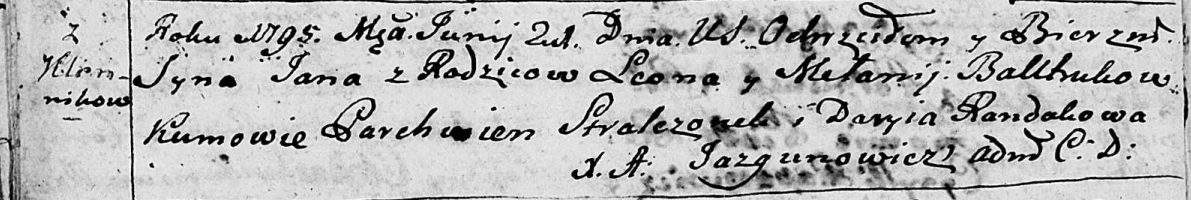 z
Klon-
nikow
Roku 1795. Mça. Junij 2ul. Dnia. US. Ochrzciłem y Bierzm.
Syna Jana z Rodzicow Leona y Mełanij. Bałtrukow
Kumowie Parchwien Stralczonek i Daryia Randakowa
X. A. Jazgunowicz adm C. D: